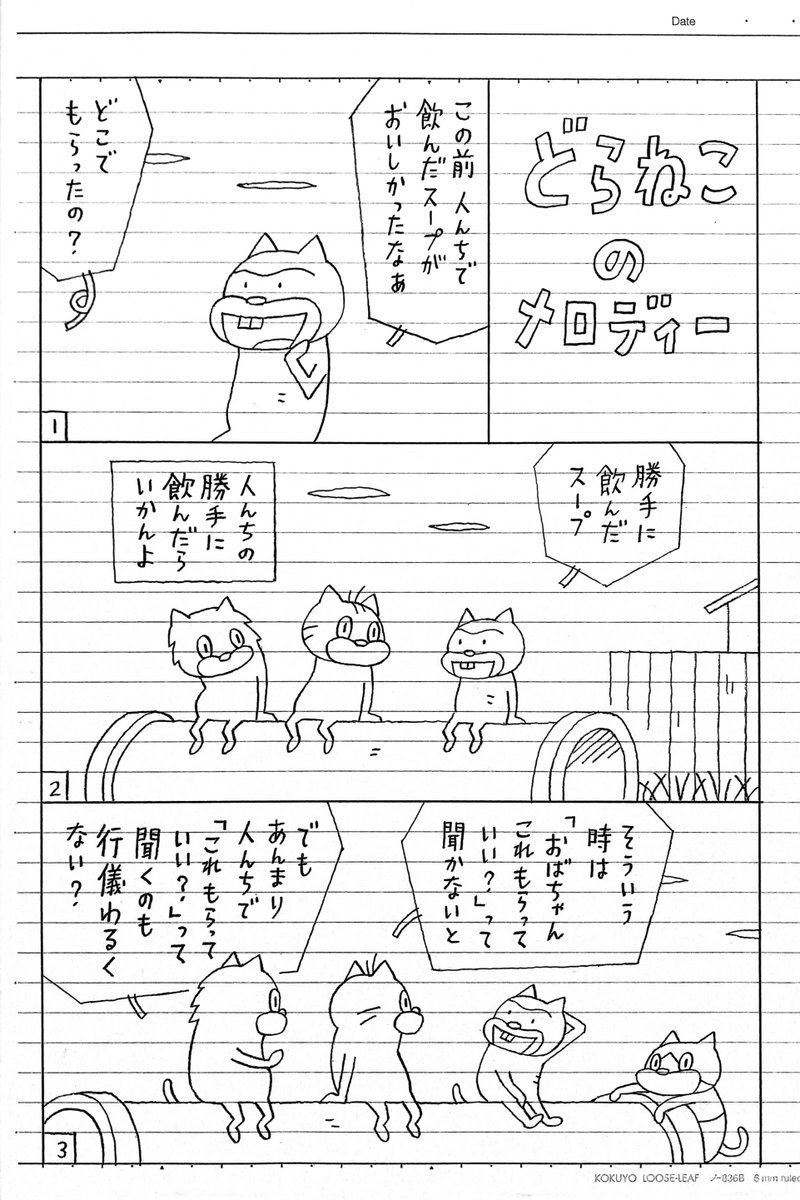 Date
どらねこ
の
メロディー
この前 人んちで
飲んだスープが
おいしかったなぁ
どこで
もらったの?
1
勝手に
飲んだ
スープ
人んちの
勝手に
飲んだら
いかんよ
2
そういう
時は
「おばちゃん
これもらって
いい?」って
聞かないと
でも
あんまり
人んちで
「これもらって
いい?」って
聞くのも
行儀わるく
ない?
3
KOKUYO LOOSE-LEAF ノ-836B 6 mm ruled